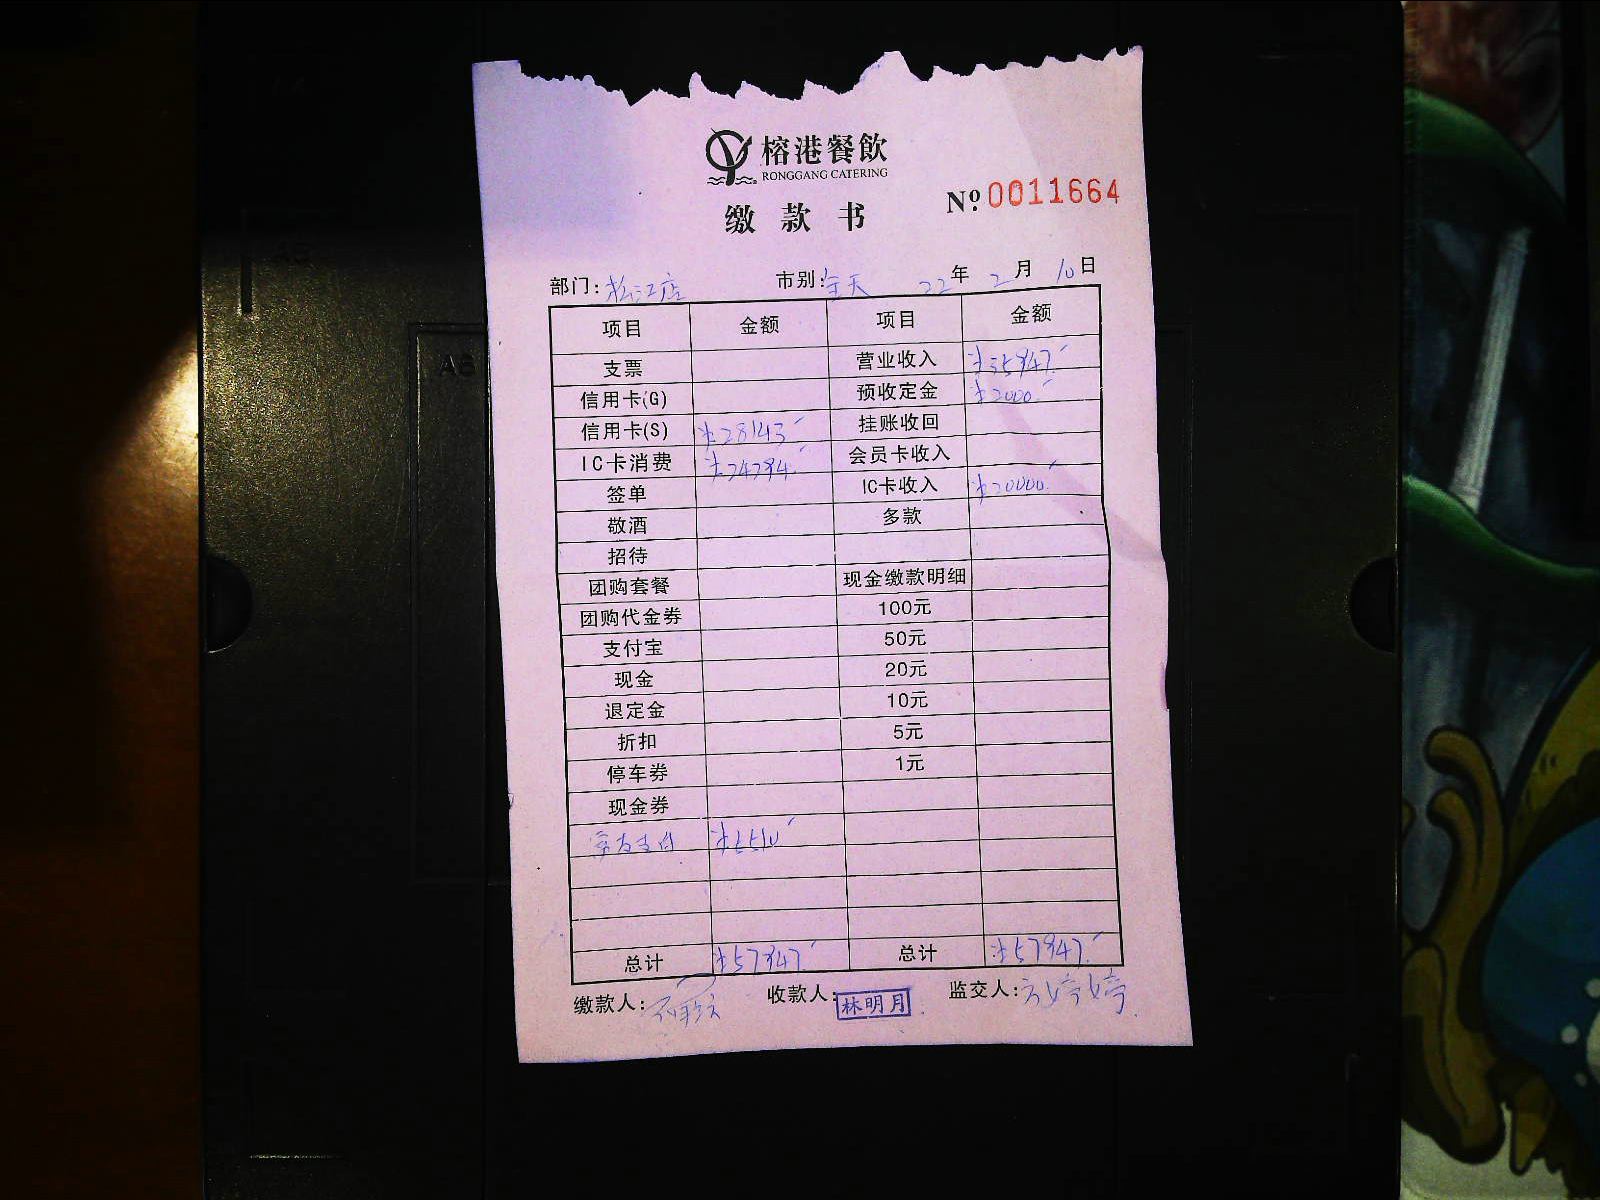 榕港餐飲
RONGGANG CATERING
缴款书
№ 0011664
部门: 松江店 市别: 全天 22年 2月 10日
A6
项目 金额 项目 金额
支票 营业收入 ¥35847.
信用卡(G) 预收定金 ¥2000.
信用卡(S) ¥28143 挂账收回
IC卡消费 ¥24194. 会员卡收入
签单 IC卡收入 ¥20000.
敬酒 多款
招待
团购套餐 现金缴款明细
团购代金券 100元
支付宝 50元
现金 20元
退定金 10元
折扣 5元
停车券 1元
现金券
支付 ¥5510
总计 ¥57847. 总计 ¥57847.
缴款人: 收款人: 林明月 监交人: 方婷婷